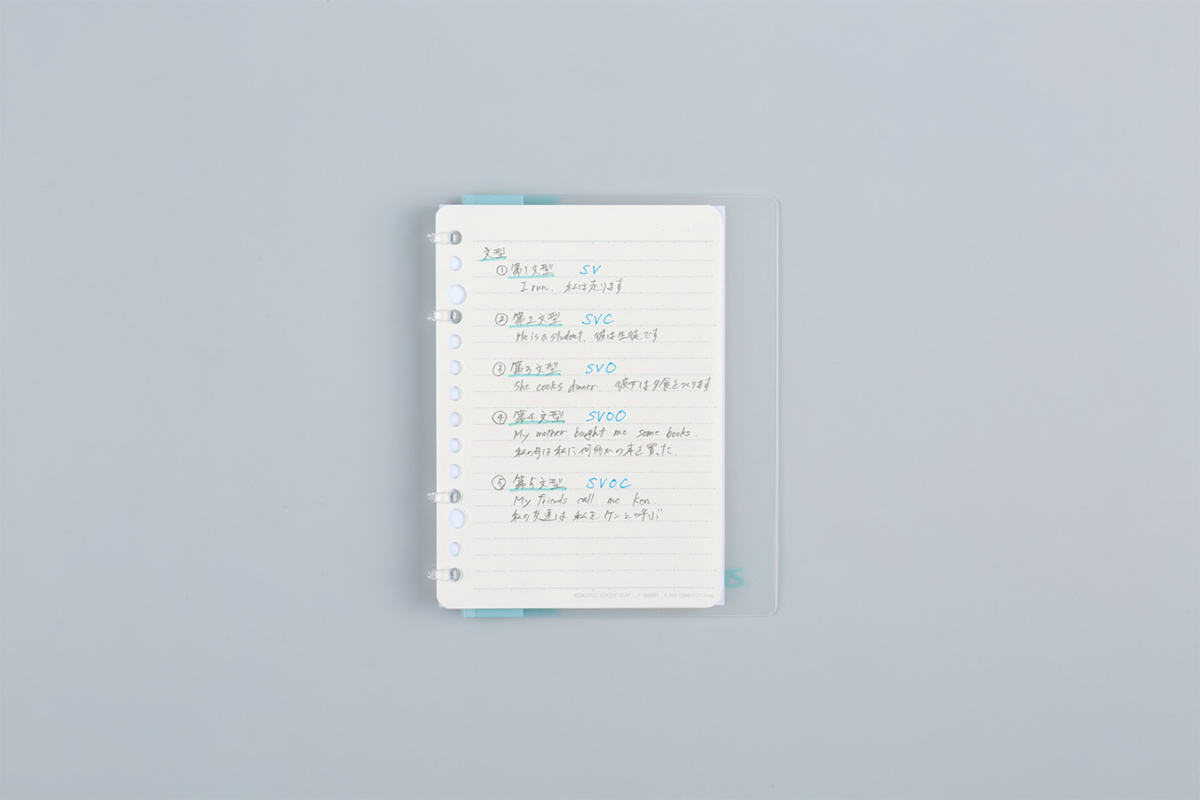 文型
① 第1文型 SV
I run. 私は走ります
② 第2文型 SVC
He is a student. 彼は生徒です
③ 第3文型 SVO
She cooks dinner. 彼女は夕食をつくります
④ 第4文型 SVOO
My mother bought me some books.
私の母は私に何冊かの本を買った.
⑤ 第5文型 SVOC
My friends call me Ken.
私の友達は私をケンと呼ぶ